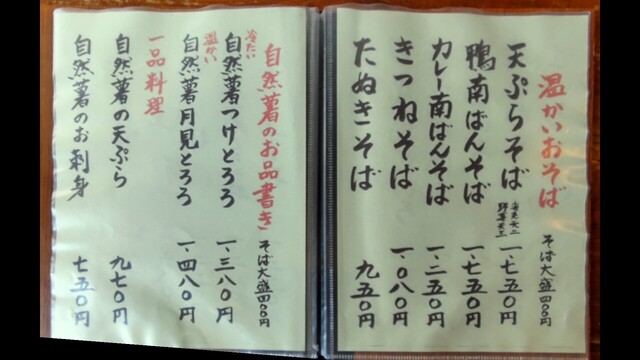 温かいおそば
そば大盛四〇〇円
天ぷらそば 海老天二 野菜天三 一、七五〇円
鴨南ばんそば 一、七五〇円
カレー南ばんそば 一、二五〇円
きつねそば 一、〇八〇円
たぬきそば 九五〇円
自然薯のお品書き
そば大盛四〇〇円
冷たい
自然薯つけとろろ 一、三八〇円
温かい
自然薯月見とろろ 一、四八〇円
一品料理
自然薯の天ぷら 九七〇円
自然薯のお刺身 七五〇円